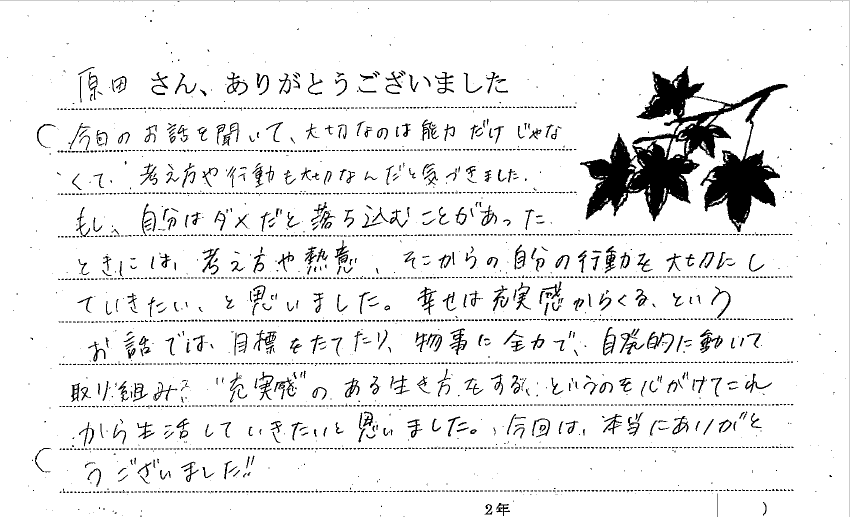 原田 さん、ありがとうございました
今日のお話を聞いて、大切なのは能力だけじゃな
くて 考え方や行動も大切なんだと気づきました。
もし、自分はダメだと落ち込むことがあった
ときには、考え方や熱意、そこからの自分の行動を大切にし
ていきたい、と思いました。幸せは充実感からくる、という
お話では、目標をたてたり、物事に全力で、自発的に動いて
取り組み、"充実感"のある生き方をする、というのを心がけてこれ
から生活していきたいと思いました。今回は、本当にありがと
うございました!!
2年 )